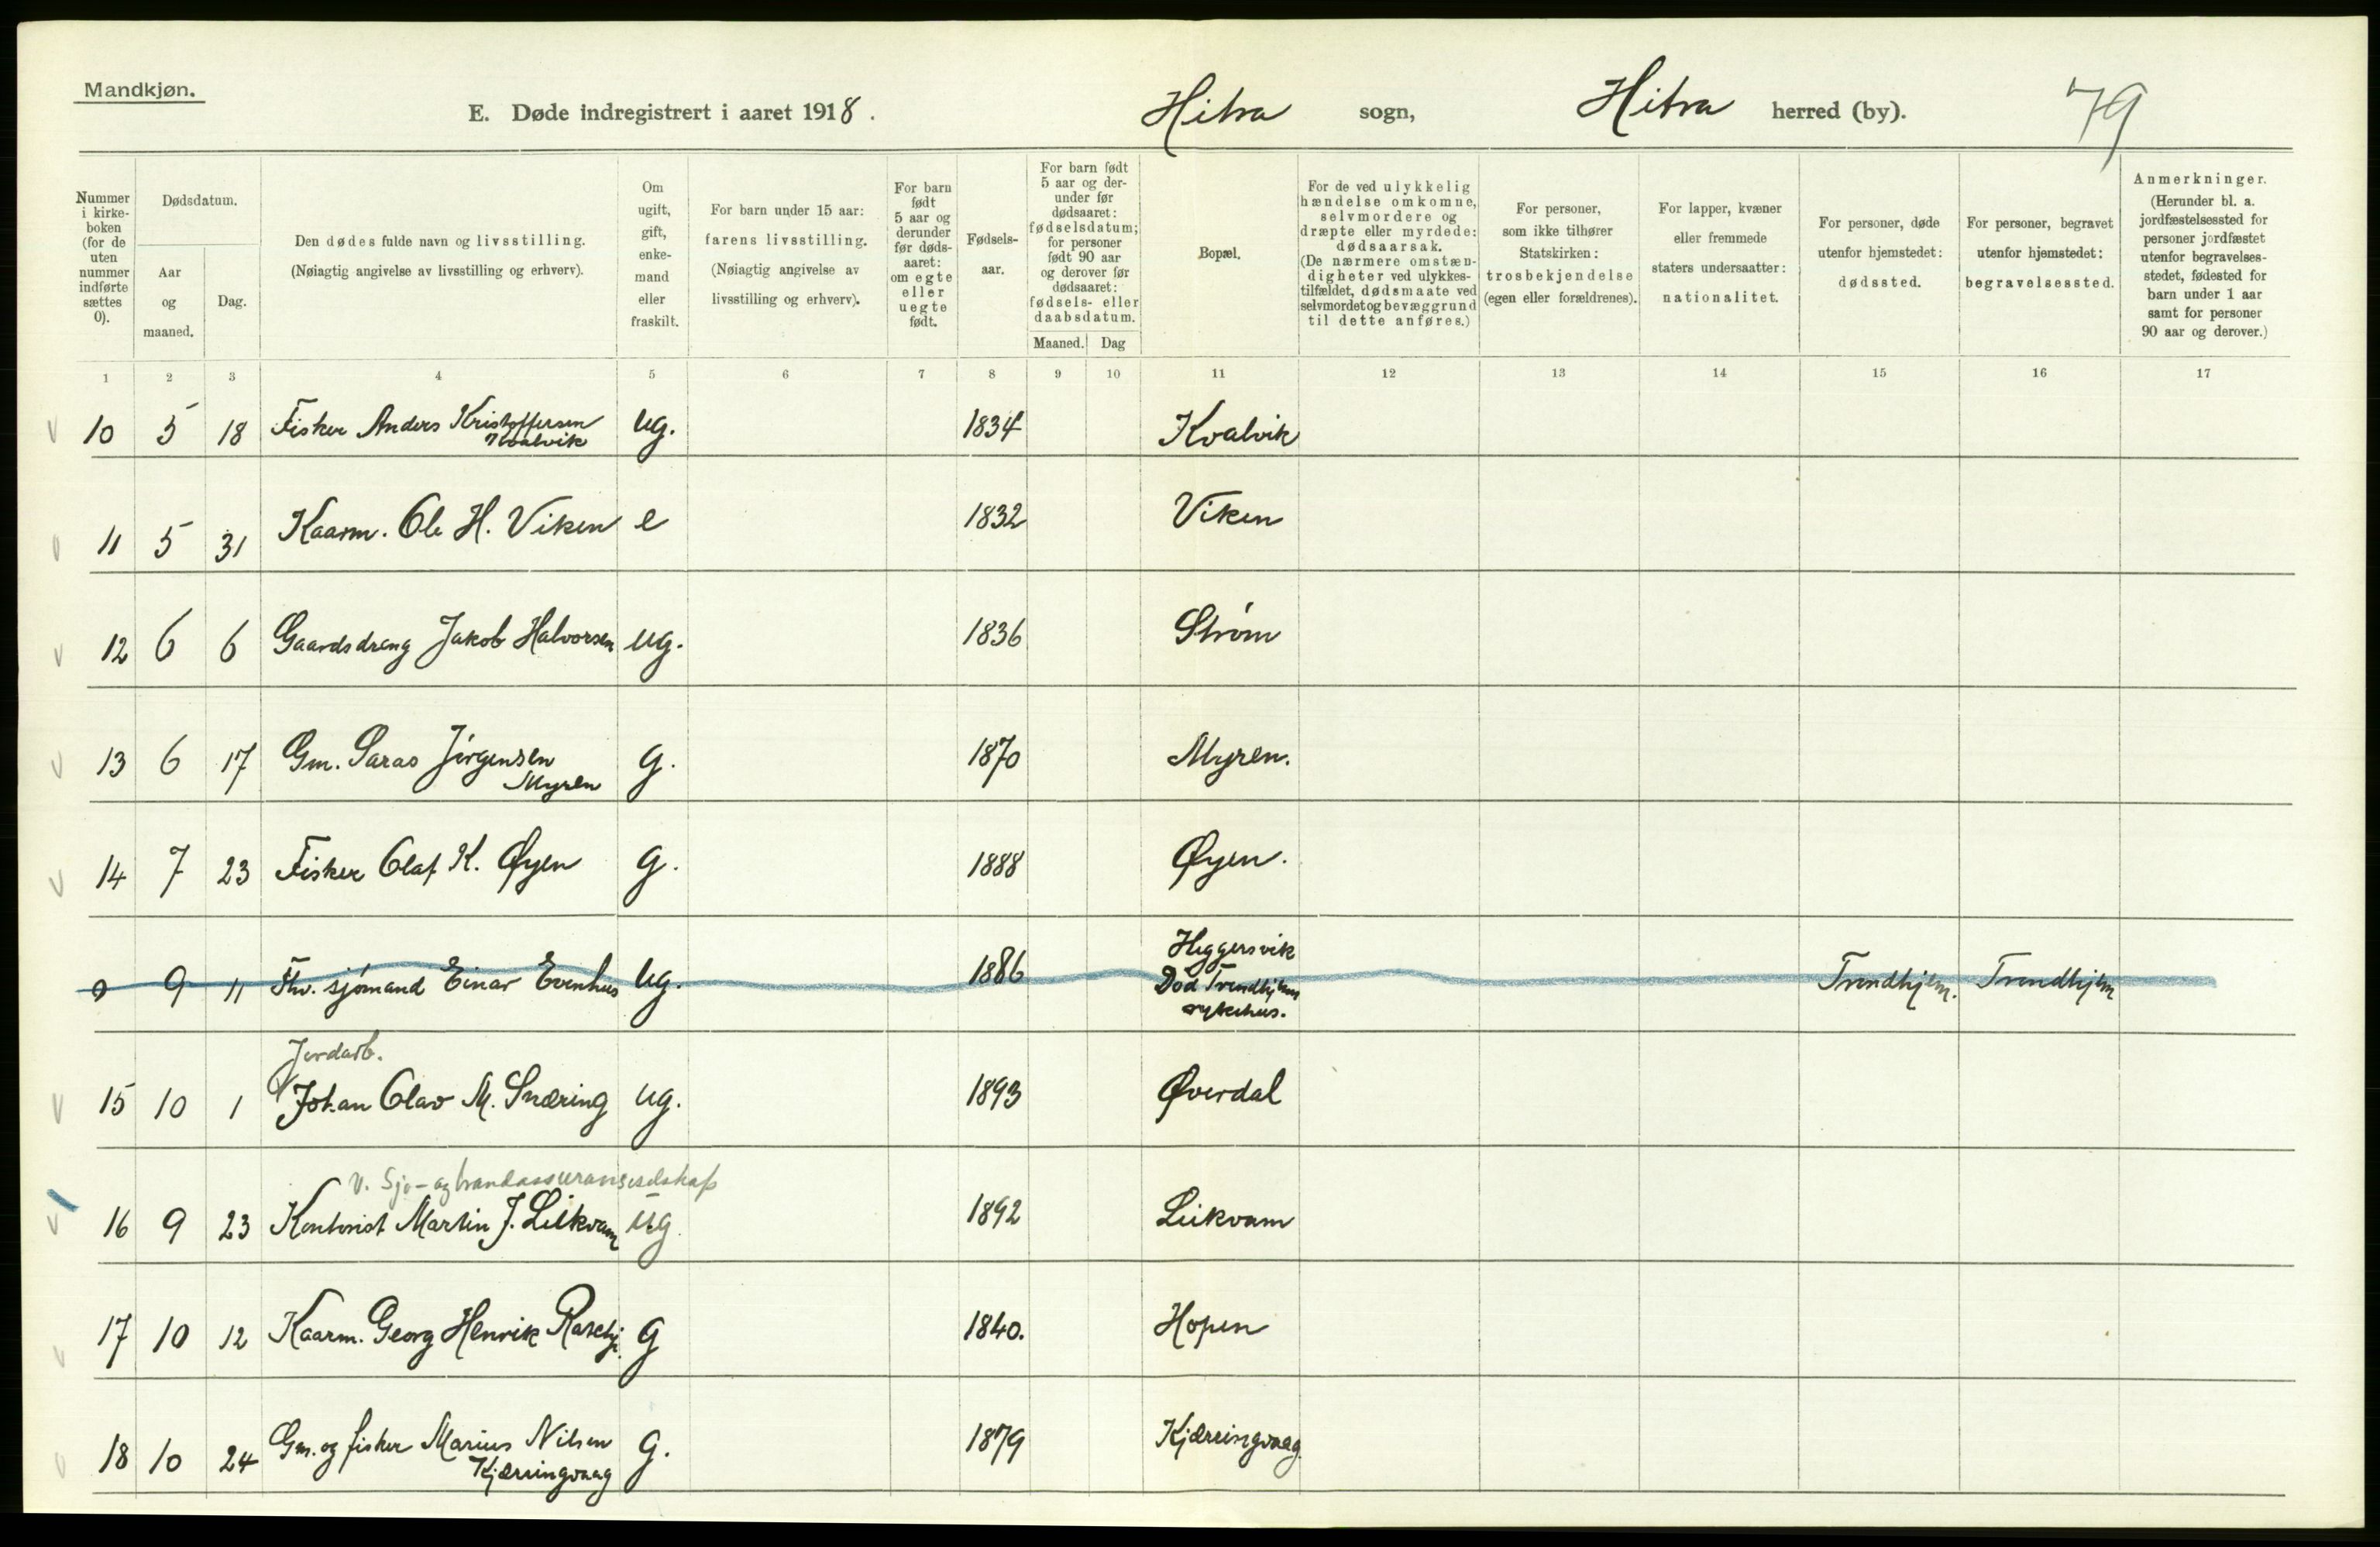 Mandkjøn.
E. Døde indregistrert i aaret 1918. Hitra sogn, Hitra herred (by). 79
Nummer i kirkeboken (for de uten nummer indførte sættes 0).
Dødsdatum.
Aar og maaned.
Dag.
Den dødes fulde navn og livsstilling.
(Nøiagtig angivelse av livsstilling og erhverv).
Om ugift, gift, enkemand eller fraskilt.
For barn under 15 aar: farens livsstilling.
(Nøiagtig angivelse av livsstilling og erhverv).
For barn født 5 aar og derunder før dødsaaret: om egte eller uegte født.
Fødselsaar.
For barn født 5 aar og derunder før dødsaaret: fødselsdatum; for personer født 90 aar og derover før dødsaaret: fødsels- eller daabsdatum.
Maaned. Dag
Bopæl.
For de ved ulykkelig hændelse omkomne, selvmordere og dræpte eller myrdede: dødsaarsak.
(De nærmere omstændigheter ved ulykkestilfældet, dødsmaate ved selvmordet og bevæggrund til dette anføres.)
For personer, som ikke tilhører Statskirken: trosbekjendelse (egen eller forældrenes).
For lapper, kvæner eller fremmede staters undersaatter: nationalitet.
For personer, døde utenfor hjemstedet: dødssted.
For personer, begravet utenfor hjemstedet: begravelsessted.
Anmerkninger.
(Herunder bl. a. jordfæstelsessted for personer jordfæstet utenfor begravelsesstedet, fødested for barn under 1 aar samt for personer 90 aar og derover.)
1 2 3 4 5 6 7 8 9 10 11 12 13 14 15 16 17
10 5 18 Fisker Anders Kristoffersen ug. 1834 Kvalvik
Kvalvik
11 5 31 Kaarm. Ole H. Viken e 1832 Viken
12 6 6 Gaardsdreng Jakob Halvorsen ug. 1836 Strøm
13 6 17 Gm. Saras Jørgensen g. 1870 Myren.
Myren
14 7 23 Fisker Olaf K. Øyen g. 1888 Øyen.
Heggersvik
0 9 11 Fhv. sjømand Einar Evenhus ug. 1886 Død Trondhjems Trondhjem. Trondhjem
sykehus.
Jordarb.
15 10 1 Johan Olav M. Snæring ug. 1893 Øverdal
v. Sjø- og brandassuranseselskap
16 9 23 Kontorist Martin J. Leikvam ug 1892 Leikvam
17 10 12 Kaarm. Georg Henrik g 1840. Hopen
18 10 24 Gm. og fisker Marius Nilsen g. 1879 Kjærringvaag.
Kjærringvaag